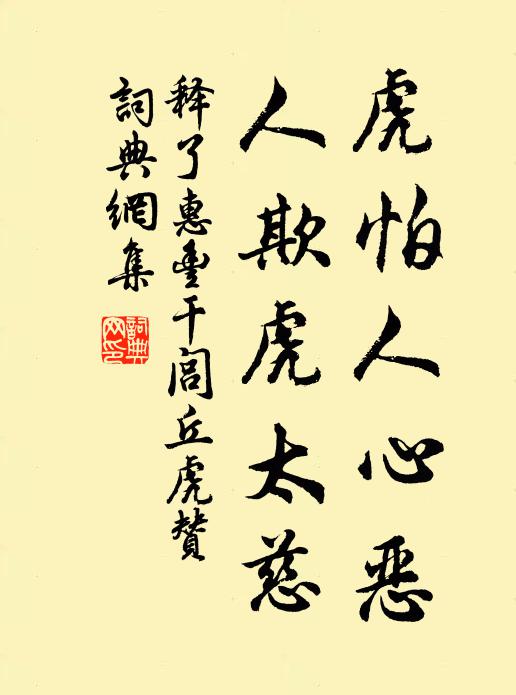 虎怕人心恶
人欺虎太慈
释了惠豊干闾丘虎赞
詞典網集
詞典
网印